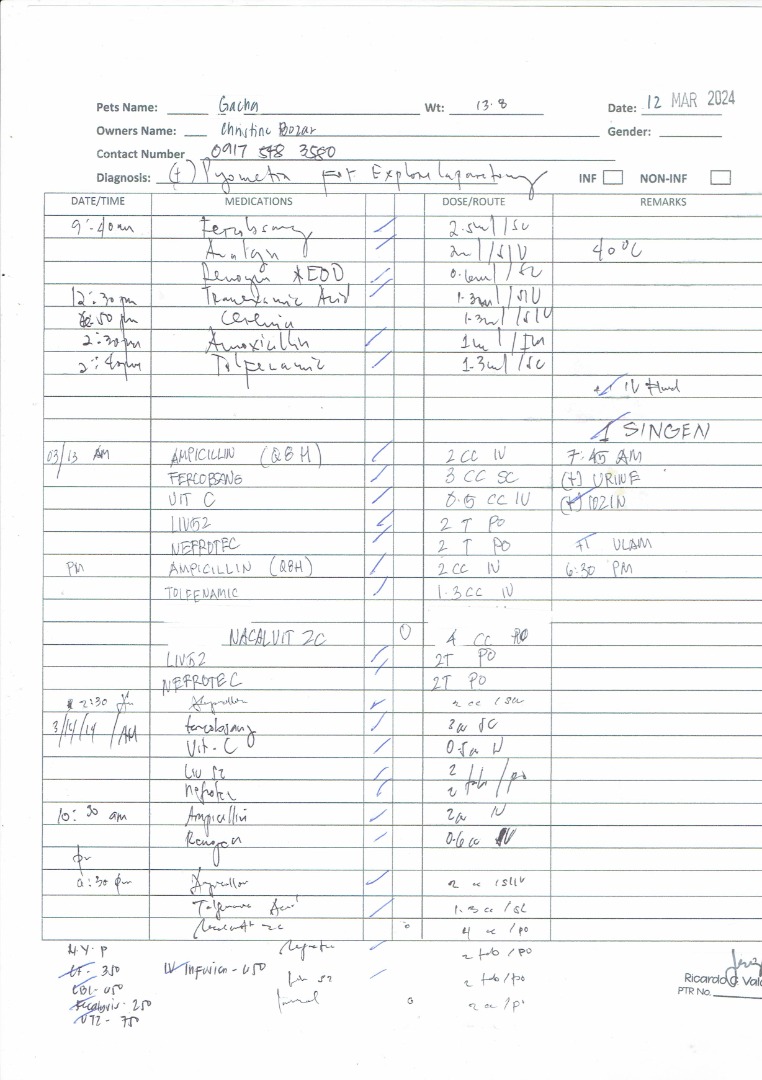 Pets Name: Gacha Wt: 13.8 Date: 12 MAR 2024
Owners Name: Christine Bozar Gender:
Contact Number 0917 548 3580
Diagnosis: (+) Pyometra for Explore Laparotomy INF NON-INF
DATE/TIME MEDICATIONS DOSE/ROUTE REMARKS
9:40am Fercobsang 2.5ml/SC
Analgin 2ml/SIV 40°C
Renogen *EOD 0.6ml/SC
12:30 pm Tranexamic Acid 1.3ml/SIV
:50 pm Cerenia 1.3ml/SIV
2:30pm Amoxicillin 1ml/IM
2:40pm Tolfenamic 1.3ml/SC
IV Fluid
1 SINGEN
03/13 AM AMPICILLIN (Q8H) 2 CC IV 7:45 AM
FERCOBSANG 3 CC SC (+) URINE
VIT C 0.5 CC IV (+)
LIV52 2 T PO
NEFROTEC 2 T PO ULAM
PM AMPICILLIN (Q8H) 2 CC IV 6:30 PM
TOLFENAMIC 1.3 CC IV
NACALVIT 2C 4 CC PO
LIV52 2T PO
NEFROTEC 2T PO
2:30 2 cc
3/14/14 /AM fercobsang 3cc SC
Vit-C 0.5cc IV
Liv 52 2
Nefrotec 2 tab/po
10:30 am Ampicillin 2cc IV
Renogen 0.6cc
pm
:30 pm 2 cc
Tolfenamic Acid 1.3 cc/SC
2c 4 cc/po
2 tab/po
350 IV Infusion - 450 Liv 52 2 tab/po
CBC - 450 2 cc/po
250
UTZ - 750
Ricardo
PTR No.